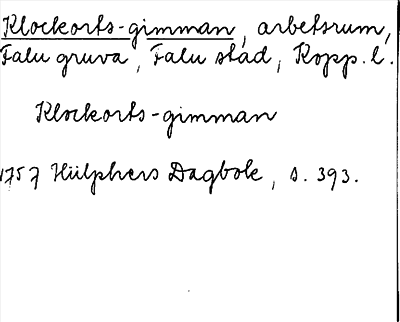 Klockorts-gimman, arbetsrum,
Falu gruva, Falu stad, Kopp. l.
Klockorts-gimman
1757 Hülphers Dagbok, s. 393.